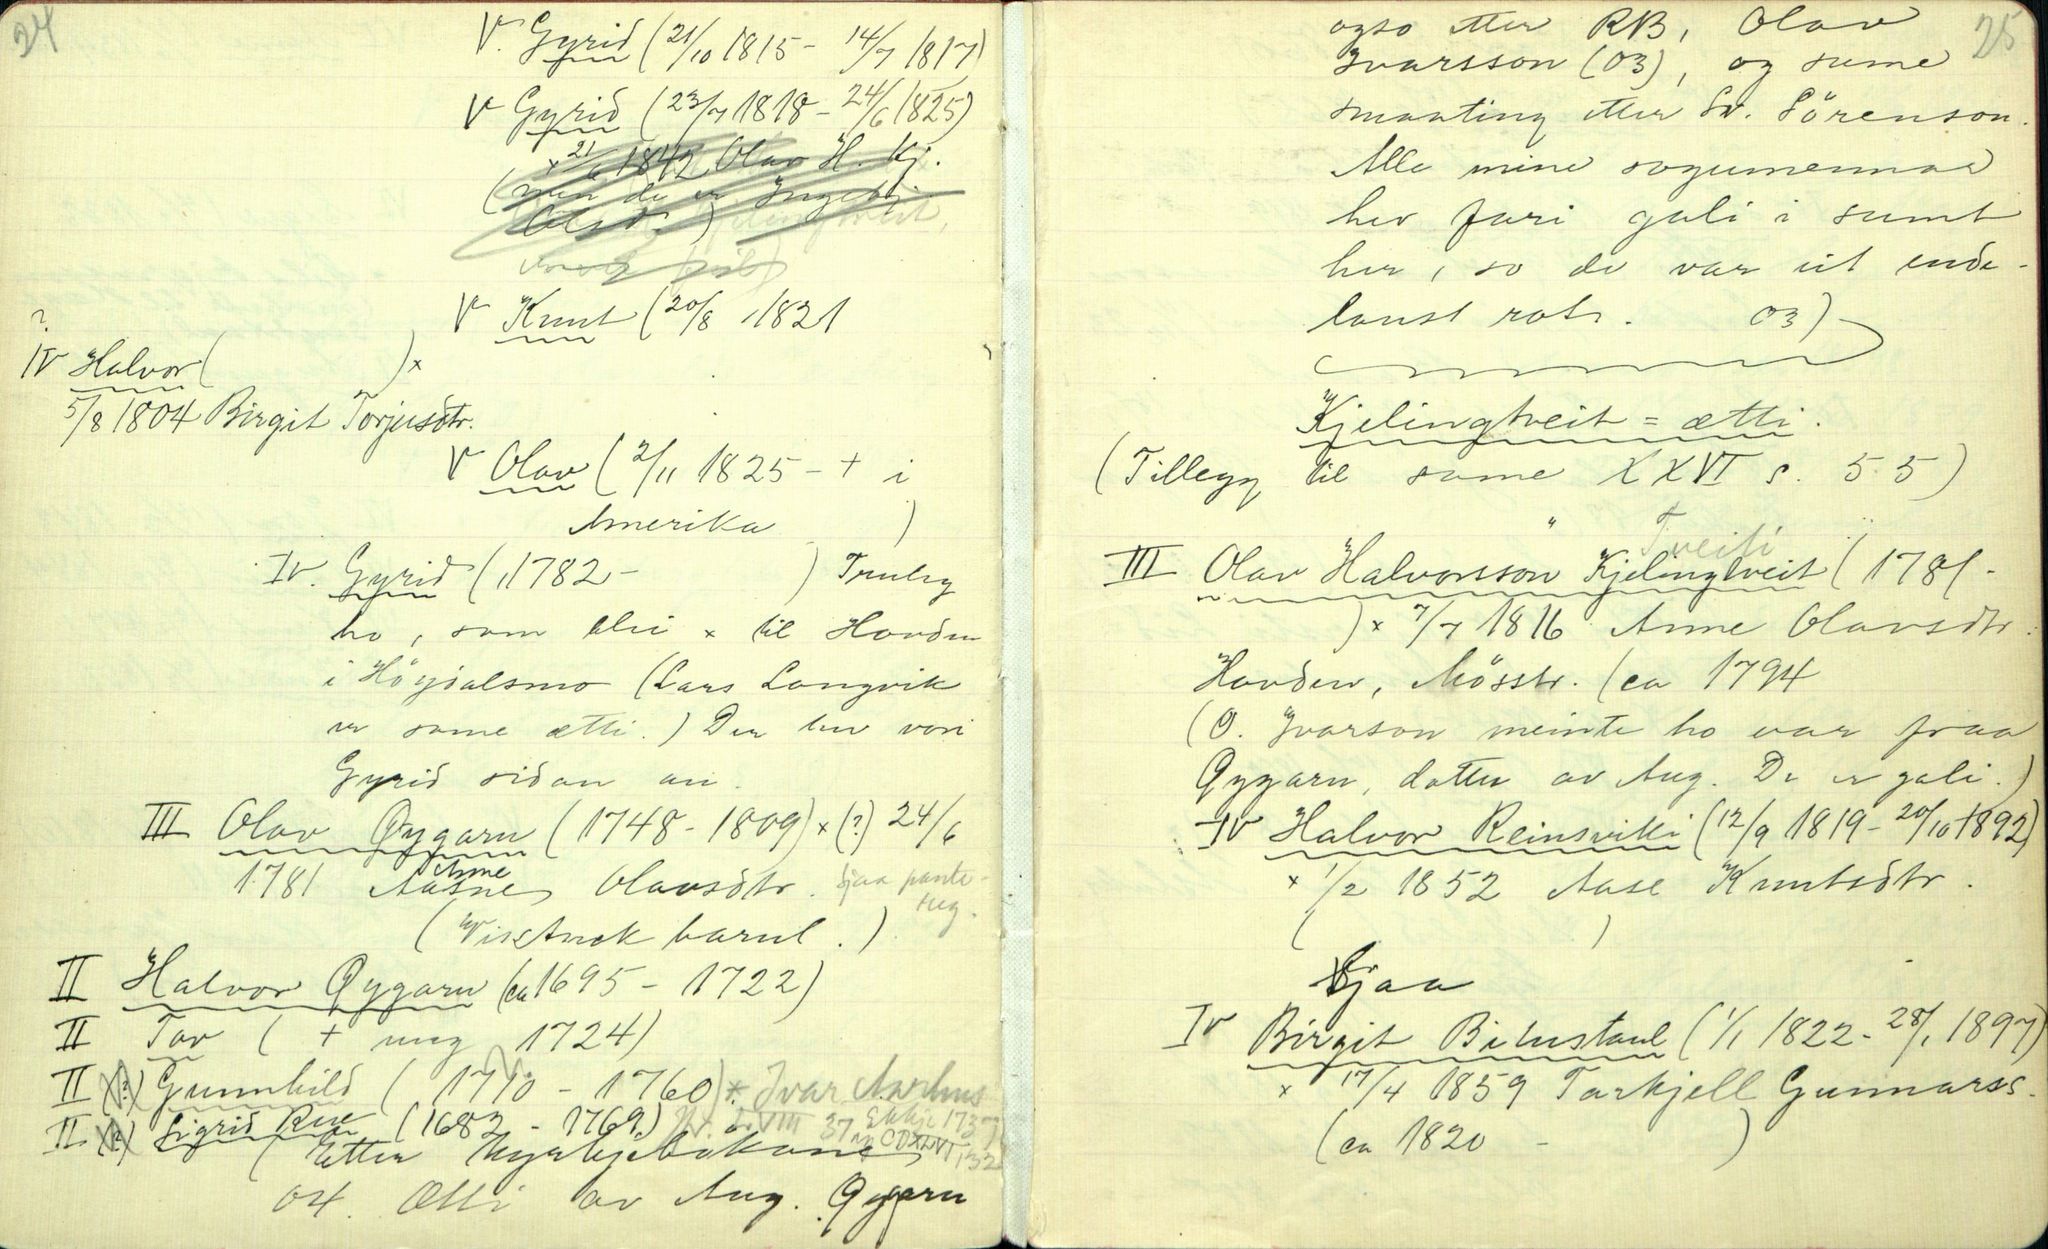 24
V. Gyrid (21/10 1815 - 14/7 1817)
V Gyrid (23/7 1818 - 24/6 1825)
x 21/6 1842 Olav H. Kj.
(men de er Ingebj.
Olsd.)
V Knut (20/8 1821
?
IV Halvor ( ) x
5/8 1804 Birgit Torjusdtr.
V Olav (2/11 1825 - + i
Amerika )
IV. Gyrid (1782 - ) Truleg
ho, som blei x til Hovden
i Höydalsmo (Lars Longvik
er same ætti.) Der hev vori
Gyrid sidan an.
III Olav Øygarn (1748 - 1809) x (?) 24/6
1781 Aasne Anne Olavsdtr. sjaa
(Visstnok barnl.)
II Halvor Øygarn (ca 1695 - 1722)
II Tov ( + ung 1724)
II (?) Gunnhild (1710 - 1760) x Ivar Aarhus
II (?) Sigrid Rue (1682 - 1769)
(Etter kyrkjebökane
04. Ætti av Aug. Øygarn
25
ogso etter RB, Olav
Ivarsson (03), og sume
smaating etter Sv. Sörenson.
Alle mine sogumennar
hev fari gali i sumt
her, so de var eit ende-
laust rot. 03)
Kjelingtveit = ætti.
(Tillegg til same XXVI s. 55)
Tveiti
III Olav Halvorsson Kjelingtveit (1781 -
) x 7/7 1816 Anne Olavsdtr.
Hovden, Mösstr. (ca 1794
(O. Ivarson meinte ho var fraa
Øygarn, dotter av Aug. De er gali.)
IV Halvor Reinsviki (12/9 1819 - 20/10 1892)
x 1/2 1852 Aase Knutsdtr.
( )
Sjaa
IV Birgit Bitustaul (1/1 1822 - 28/1 1897)
x 17/4 1859 Tarkjell Gunnarss.
(ca 1820 - )